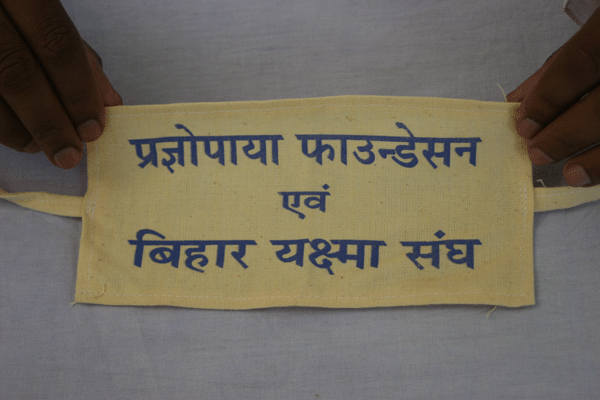 प्रज्ञोपाया फाउन्डेसन
एवं
बिहार यक्ष्मा संघ